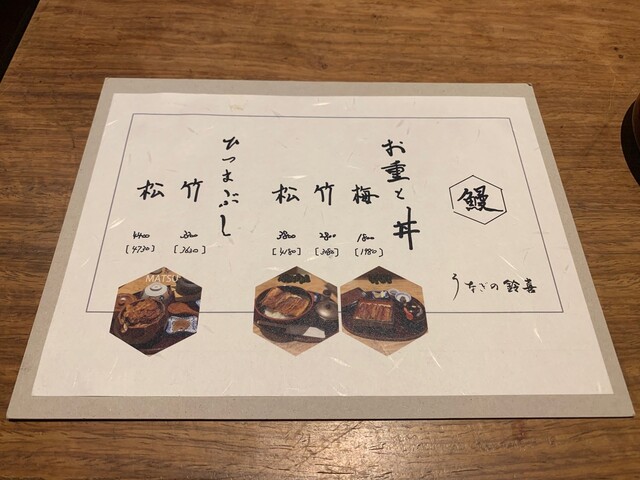 鰻
うなぎの鈴喜
お重と丼
梅
1800
[1980]
竹
2800
[3080]
松
3800
[4180]
ひつまぶし
竹
3300
[3630]
松
[4730]
MATSU